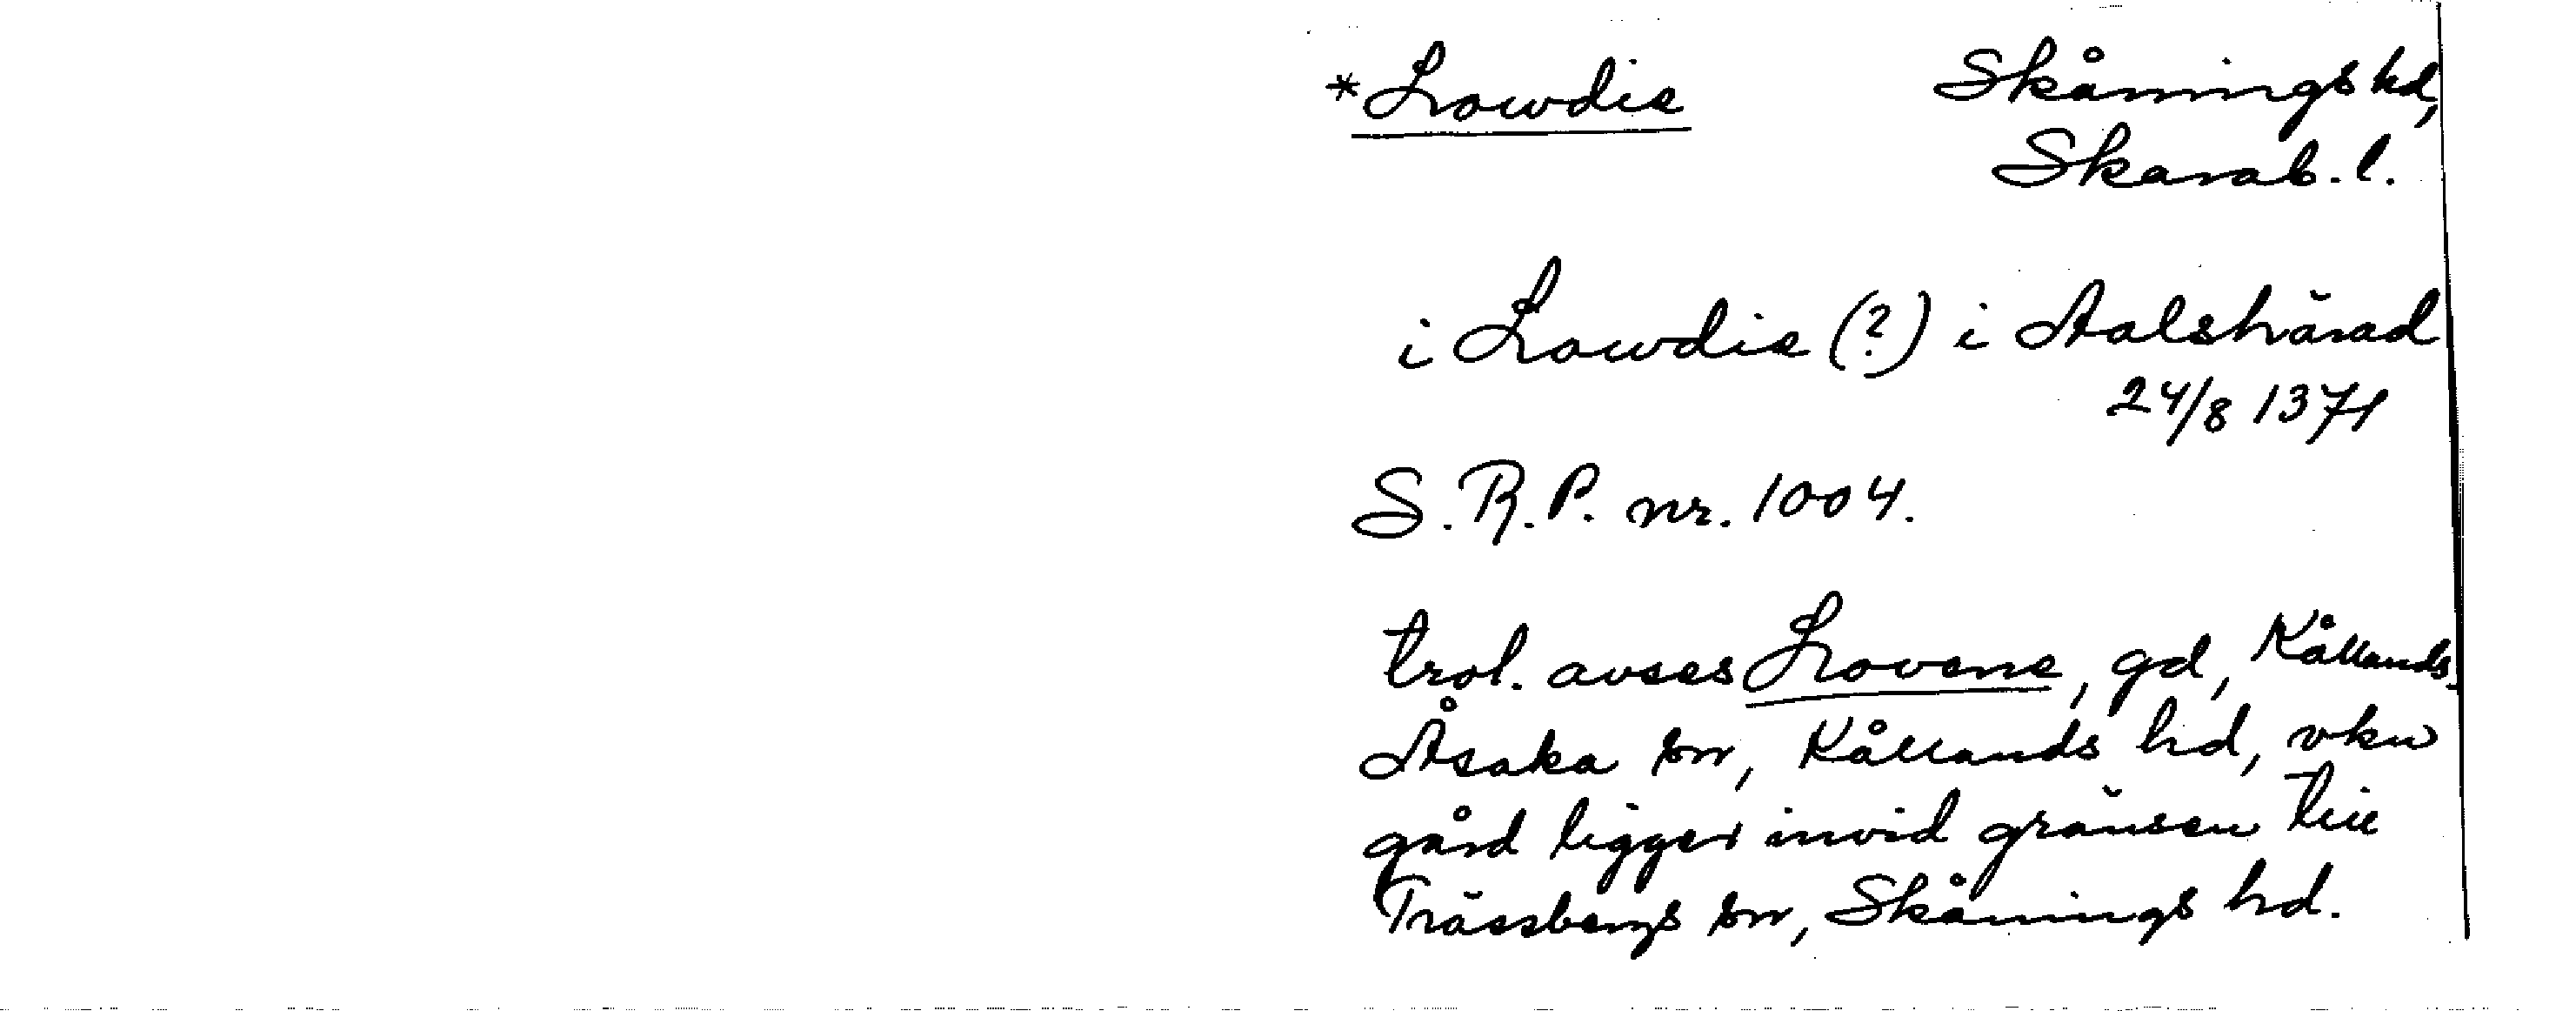 *Lowdie Skånings hd,
Skarab. l.
i Lowdie (?) i Aalshärad
24/8 1371
S.R.P. nr. 1004.
trol. avses Lovene, gd, Kållands-
Åsaka sn, Kållands hd, vken
gård ligger invid gränsen till
Trässbergs sn, Skånings hd.